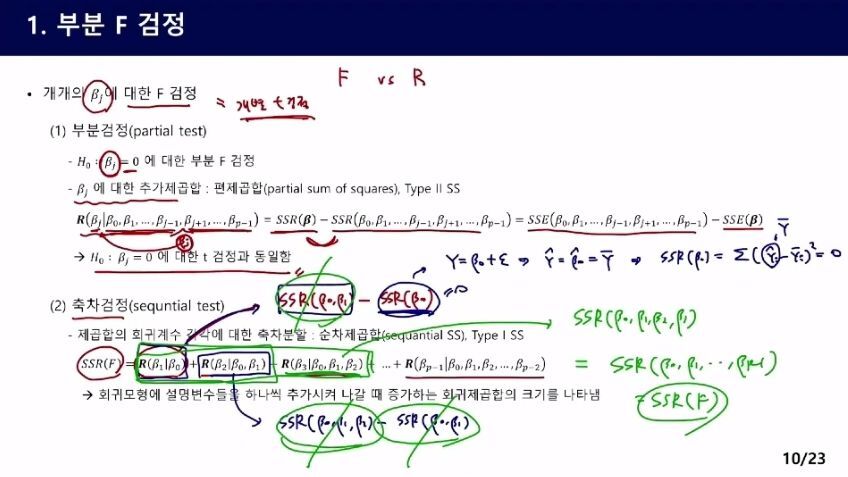 1. 부분 F 검정
F vs R
• 개개의 βj에 대한 F 검정 = 개별 t 검정
(1) 부분검정(partial test)
- H0 : βj = 0 에 대한 부분 F 검정
- βj 에 대한 추가제곱합 : 편제곱합(partial sum of squares), Type II SS
R(βj|β0, β1, … , βj−1, βj+1, … , βp−1) = SSR(β) − SSR(β0, β1, … , βj−1, βj+1, … , βp−1) = SSE(β0, β1, … , βj−1, βj+1, … , βp−1) − SSE(β)
βj
Ȳ
→ H0 : βj = 0 에 대한 t 검정과 동일함
Y = β0 + ε ⇒ Ŷ = β̂0 = Ȳ ⇒ SSR(β0) = Σ(Ŷi − Ȳi)² = 0
SSR(β0, β1) − SSR(β0) = 0
(2) 축차검정(sequntial test)
- 제곱합의 회귀계수 각각에 대한 축차분할 : 순차제곱합(sequantial SS), Type I SS
SSR(β0, β1, β2, β3)
SSR(F) = R(β1|β0) + R(β2|β0, β1) + R(β3|β0, β1, β2) + … + R(βp−1|β0, β1, β2, … , βp−2)
= SSR(β0, β1, ‥, βp-1)
→ 회귀모형에 설명변수들을 하나씩 추가시켜 나갈 때 증가하는 회귀제곱합의 크기를 나타냄
= SSR(F)
SSR(β0, β1, β2) − SSR(β0, β1)
10/23